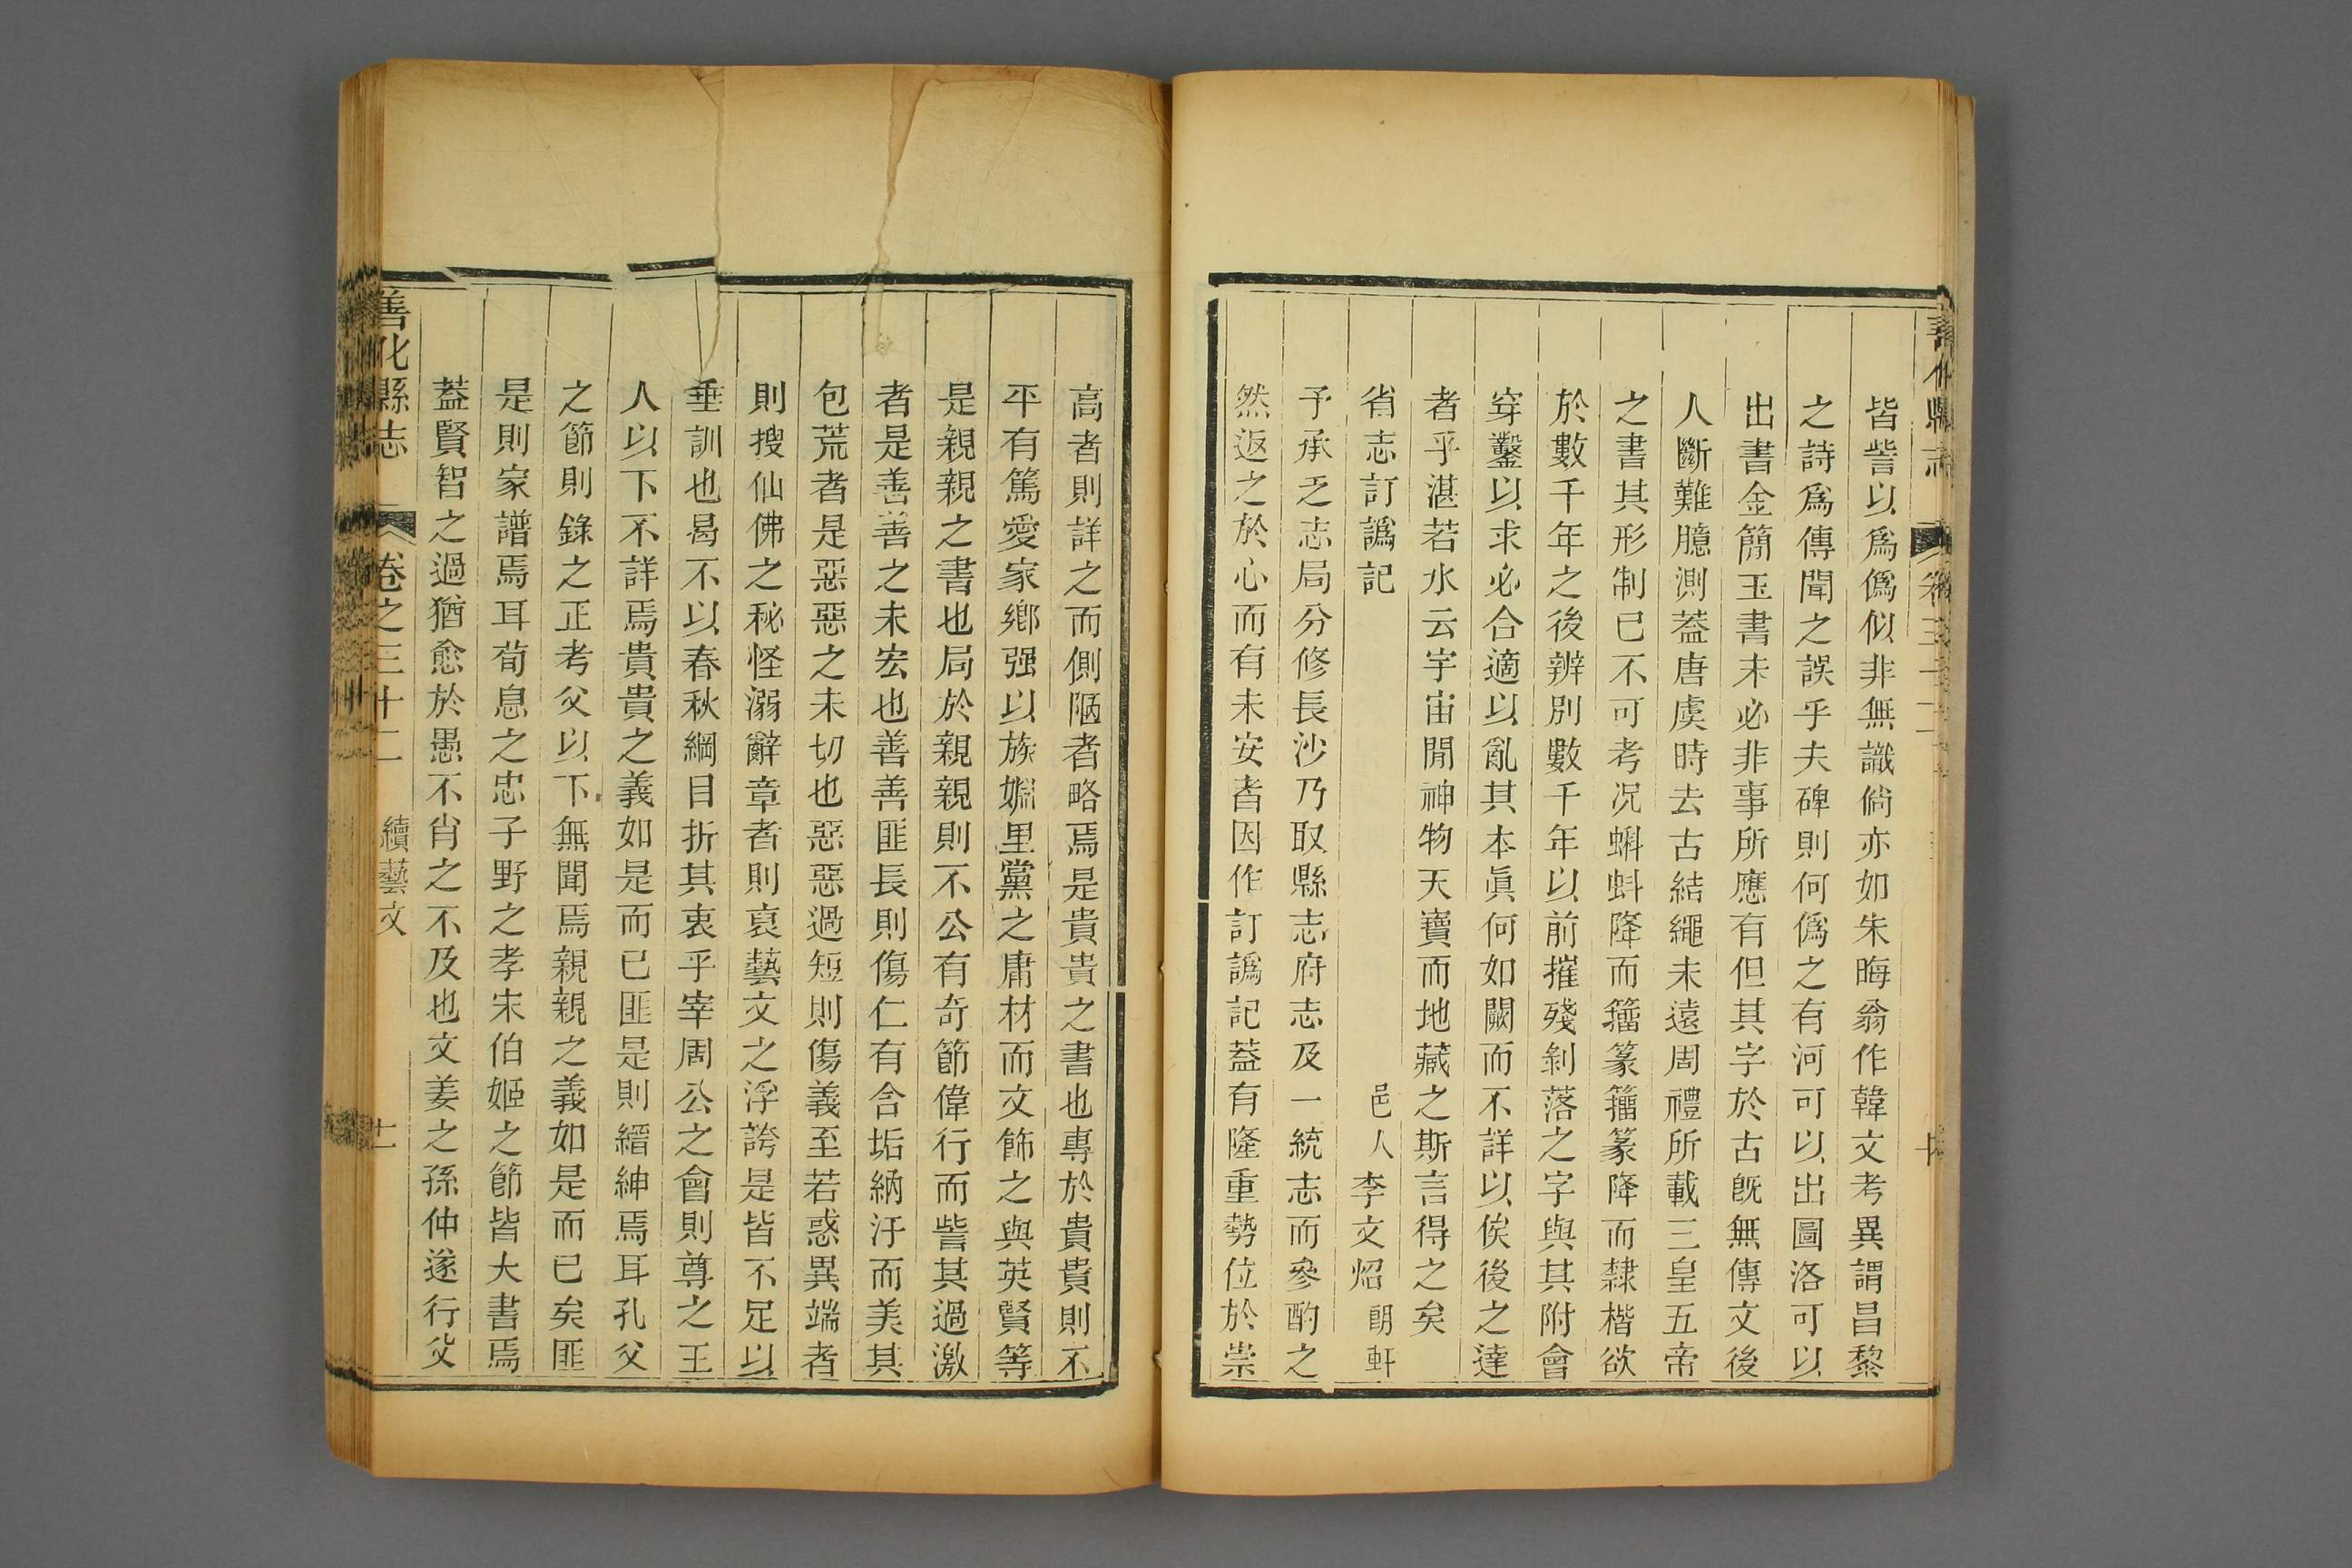 善化縣志
皆訾以爲僞似非無識倘亦如朱晦翁作韓文考異謂昌黎
之詩爲傳聞之誤乎夫碑則何僞之有河可以出圖洛可以
出書金簡玉書未必非事所應有但其字於古旣無傳文後
人斷難臆測葢唐虞時去古結繩未遠周禮所載三皇五帝
之書其形制已不可考况蝌蚪降而籀篆籀篆降而隸楷欲
於數千年之後辨別數千年以前摧殘剝落之字與其附會
穿鑿以求必合適以亂其本眞何如闕而不詳以俟後之達
者乎湛若水云宇宙閒神物天寶而地藏之斯言得之矣
省志訂譌記
邑人李文炤朗軒
予承乏志局分修長沙乃取縣志府志及一統志而參酌之
然返之於心而有未安者因作訂譌記葢有隆重勢位於崇
高者則詳之而側陋者略焉是貴貴之書也專於貴貴則不
平有篤愛家鄉强以族婣里黨之庸材而文飾之與英賢等
是親親之書也局於親親則不公有奇節偉行而訾其過激
者是善善之未宏也善善匪長則傷仁有含垢納汙而美其
包荒者是惡惡之未切也惡惡過短則傷義至若惑異端者
則搜仙佛之秘怪溺辭章者則裒藝文之浮誇是皆不足以
垂訓也曷不以春秋綱目折其衷乎宰周公之會則尊之王
人以下不詳焉貴貴之義如是而已匪是則縉紳焉耳孔父
之節則錄之正考父以下無聞焉親親之義如是而已矣匪
是則家譜焉耳荀息之忠子野之孝宋伯姬之節皆大書焉
葢賢智之過猶愈於愚不肖之不及也文姜之孫仲遂行父
善化縣志 卷之三十二 續藝文 十二